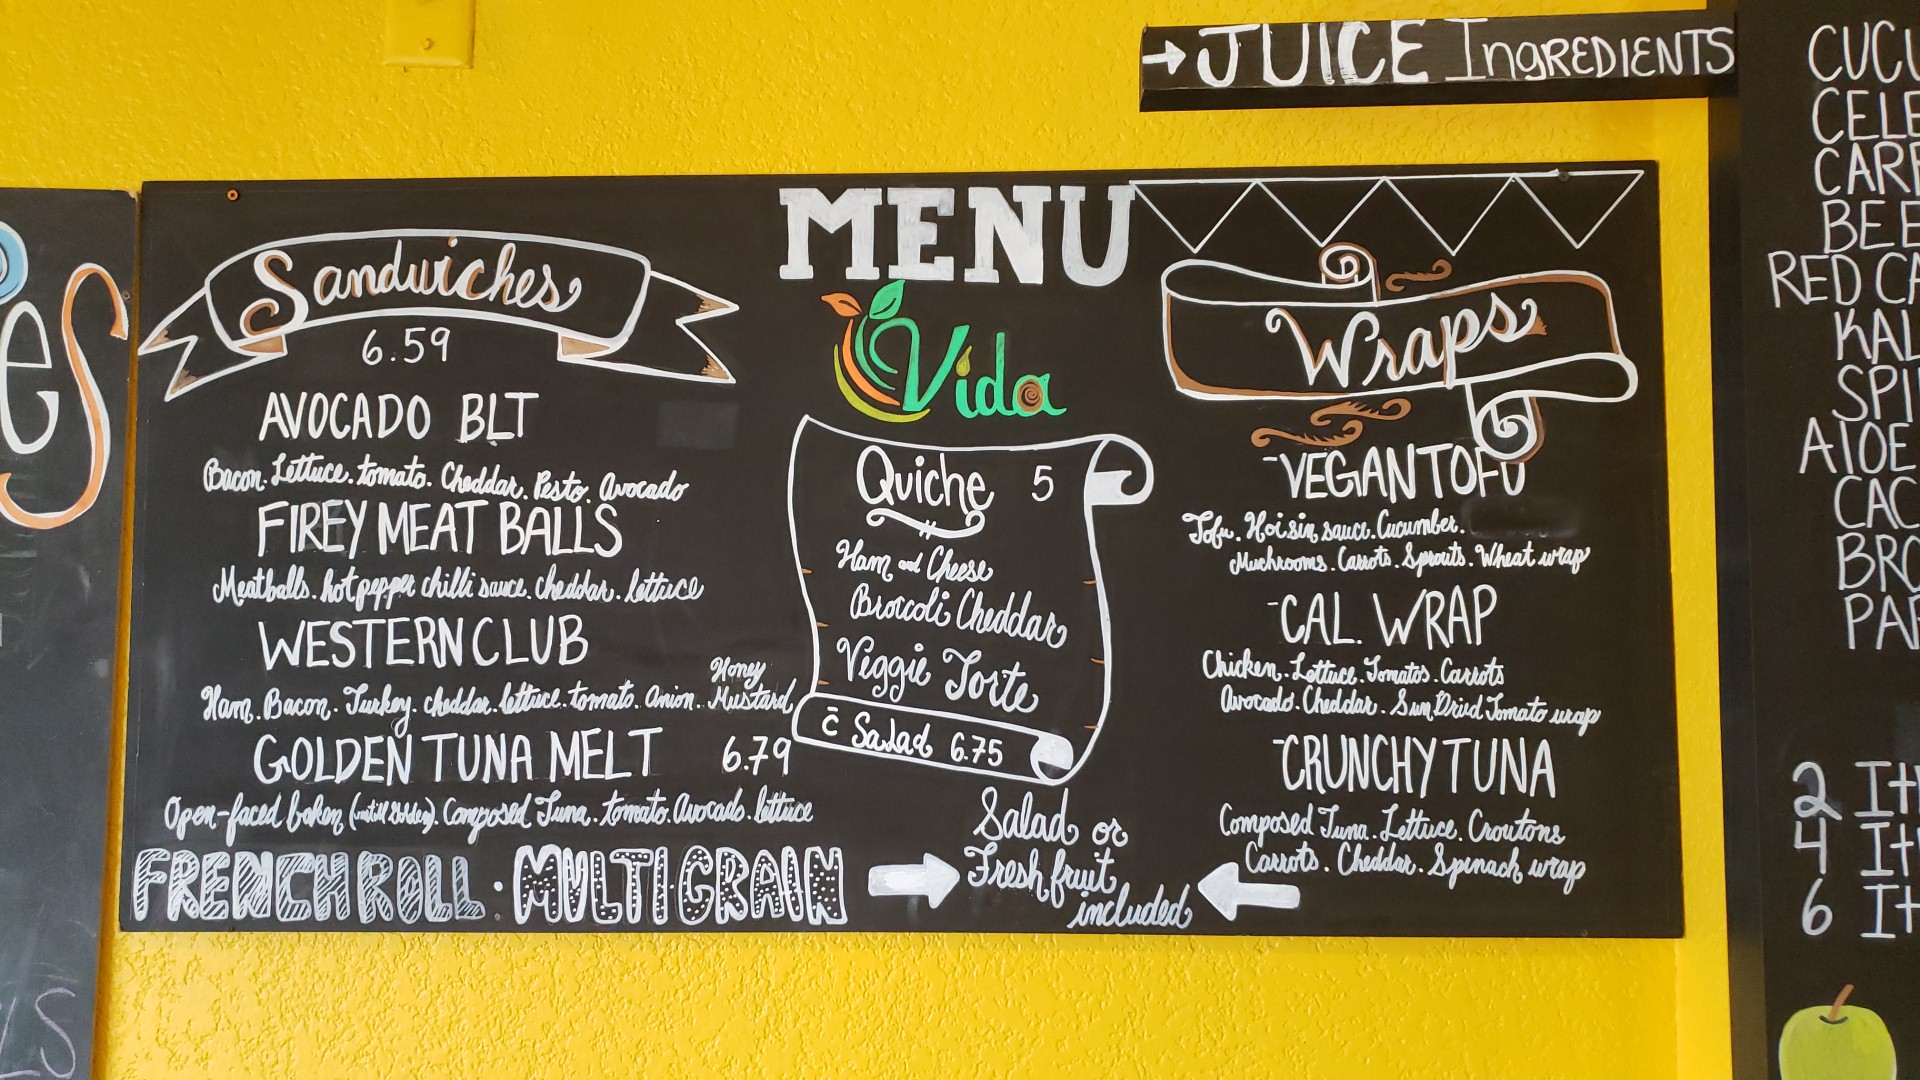 JUICE IngREDIENTS
MENU
Vida
Sandwiches
6.59
AVOCADO BLT
Bacon. Lettuce. tomato. Cheddar. Pesto. Avocado
FIREY MEAT BALLS
Meatballs. hot pepper chilli sauce. cheddar. lettuce
WESTERN CLUB
Ham. Bacon. Turkey. cheddar. lettuce. tomato. Onion. Honey Mustard
GOLDEN TUNA MELT 6.79
Open-faced baken (until Golden). Composed Tuna. tomato. Avocado. lettuce
FRENCH ROLL · MULTIGRAIN
Quiche 5
Ham and Cheese
Broccoli Cheddar
Veggie Torte
c̄ Salad 6.75
Salad or
Fresh fruit
included
Wraps
-VEGAN TOFU
Tofu. Hoisin sauce. Cucumber.
Muchrooms. Carrots. Sprouts. Wheat wrap
-CAL. WRAP
Chicken. Lettuce. Tomatos. Carrots
Avocado. Cheddar. Sun Dried Tomato wrap
-CRUNCHY TUNA
Composed Tuna. Lettuce. Croutons
Carrots. Cheddar. Spinach wrap
CUCU
CELE
CARR
BEE
RED CA
KAL
SPI
ALOE
CAC
BRO
PAR
2 It
4 It
6 It
es
LS